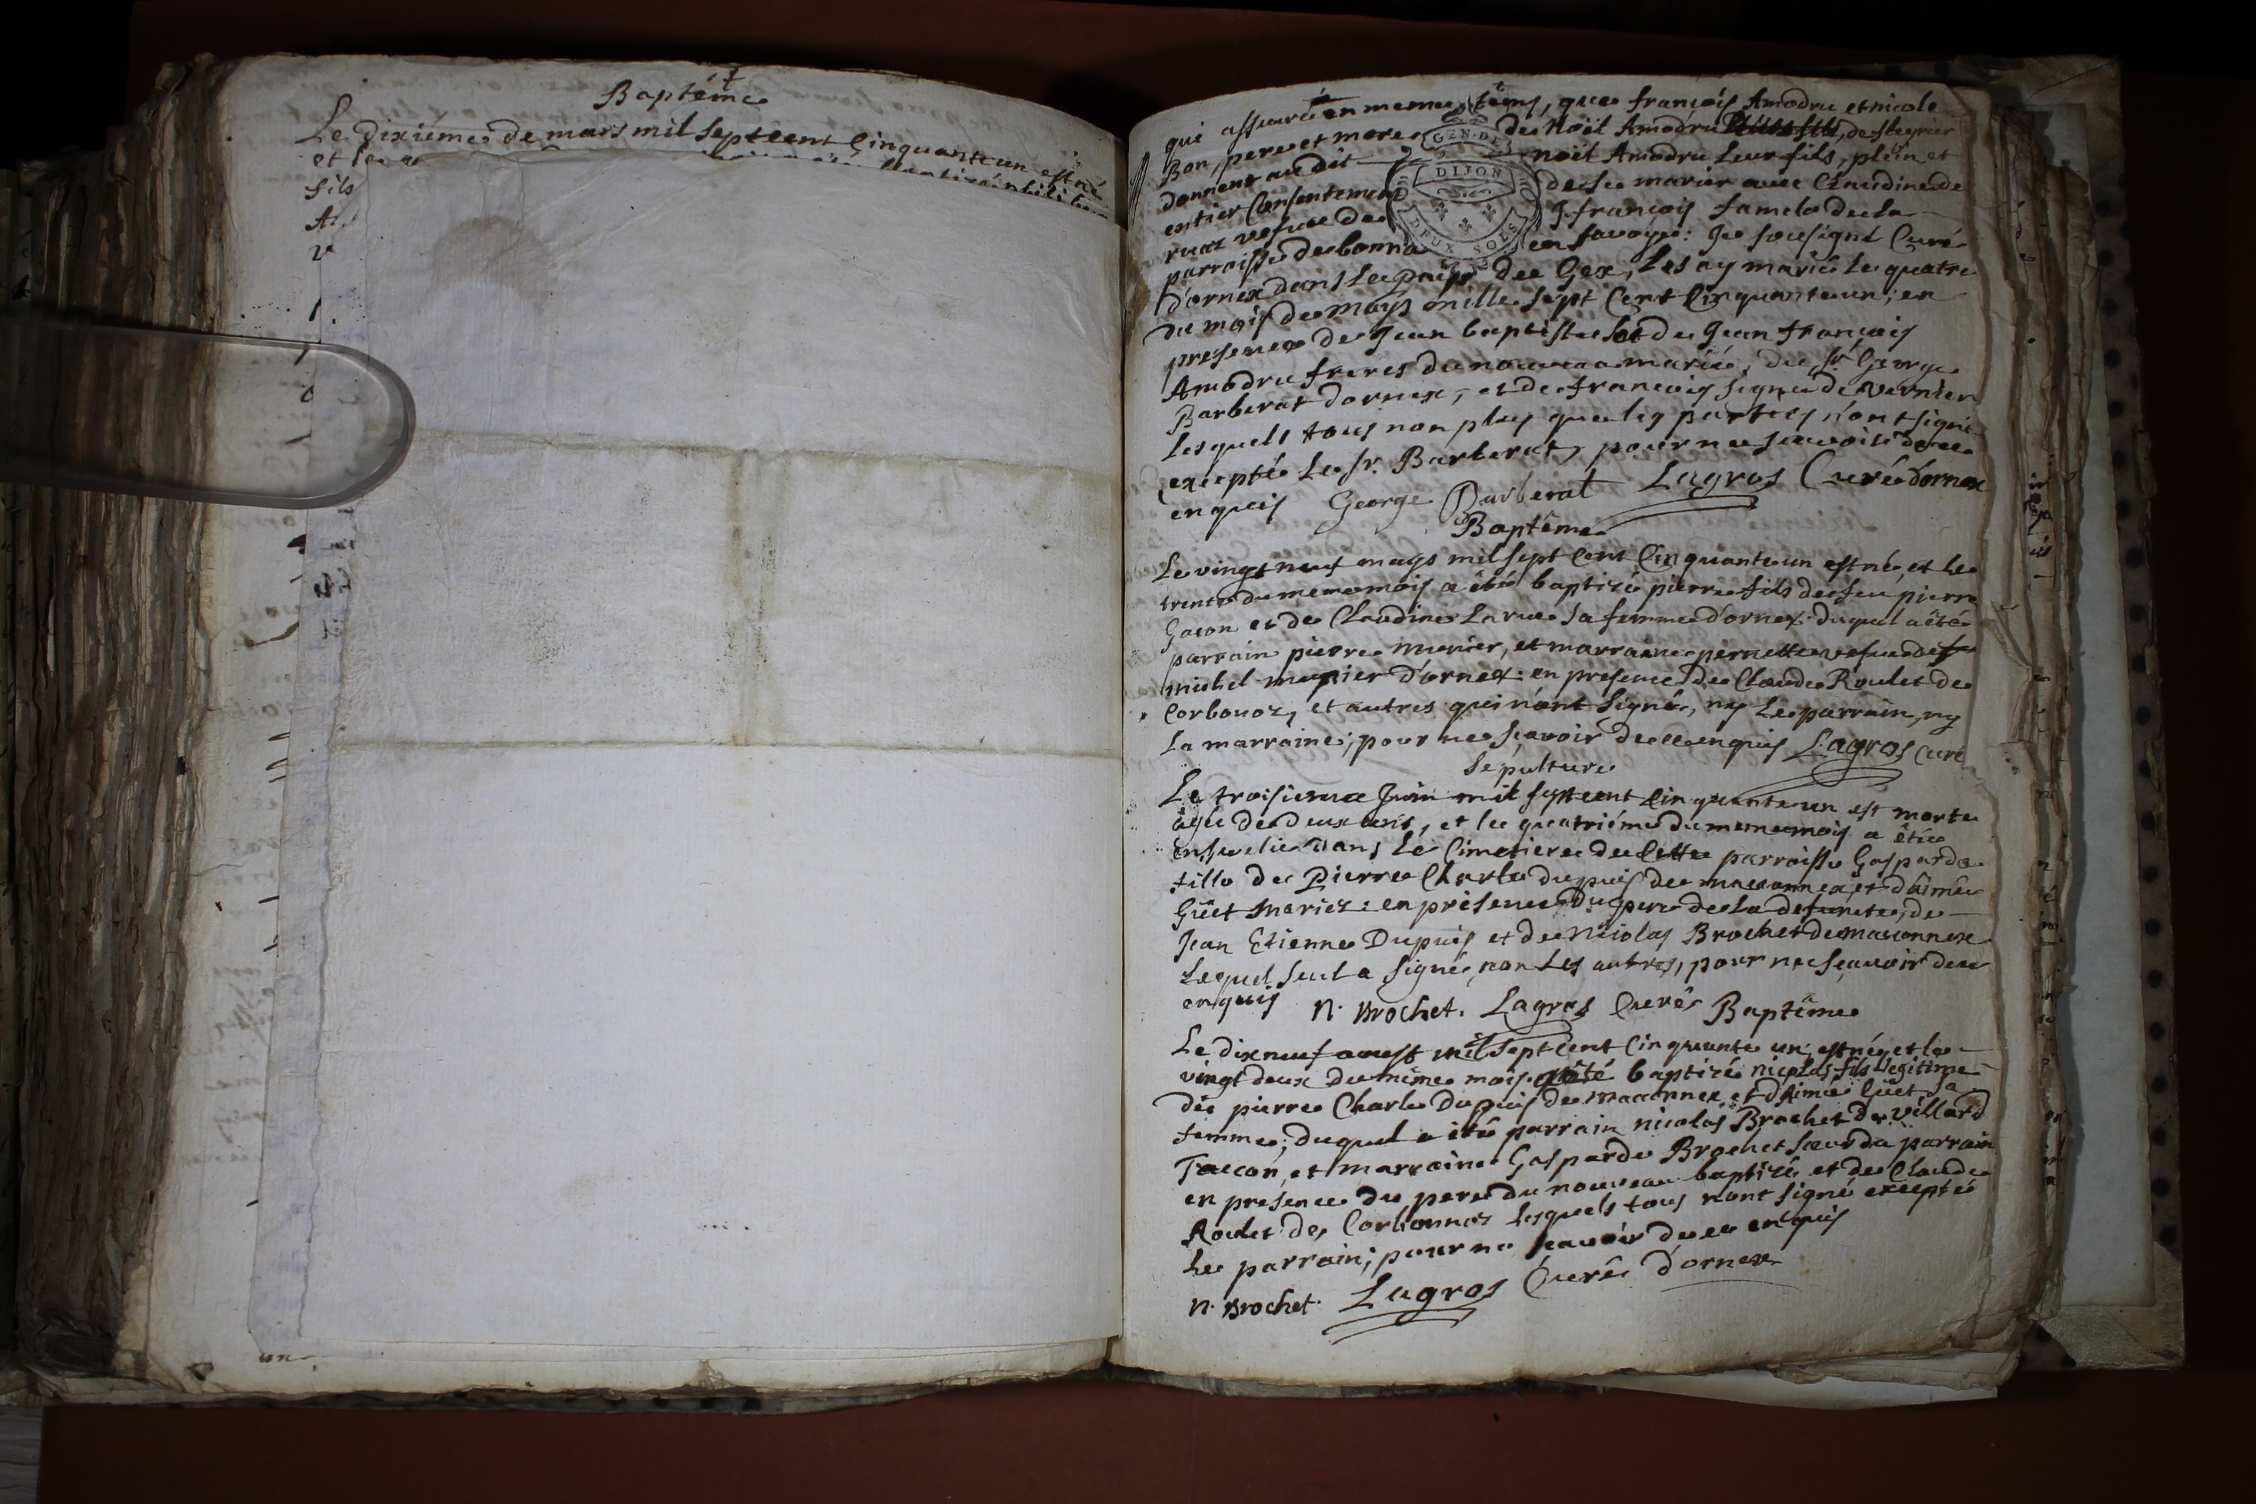 Baptéme
Le dixiéme de mars mil septcent Cinquanteun est né
et le
fils
qui assuré en meme têms, que françois Amodru et nicole
Bon, pere et mere de Noël Amodru
donnent au dit noël Amodru Leur fils, plein et
entier Consentement de se marier avec Claudine de
ruaz vefve de J françois famel de La
parroisse de bonna en Savoye: Je sousigné Curé
d'ornex dans Le païs de Gex, Les ay marié Le quatre
du mois de Mays mille sept Cent Cinquanteun; en
presence de Jean baptiste et de Jean françois
Amodru freres du nouveau marié, du sr. George
Barberat dornex, et de françois signe de Vernier
Lesquels tous non plus que les parties n'ont signé
excepté Le sr. Barberat, pour ne sçavoir de ce
enquis George Barberat Lagros Curé dornex
GEN. DE
DIJON
DEUX SOLS
Baptême
Le vingt neuf mays mil sept Cent Cinquanteun est né, et le
trente du meme mois a été baptizé pierre fils de feu pierre
Gacon et de Claudine Larue sa femme d'ornex: duquel a été
parrain pierre munier, et marraine pernette vefve de
michel munier d'ornex: en presence de Claude Roulet de
Corbonoz, et autres qui n'ont signé, ny Le parrain, ny
La marraine; pour ne sçavoir de ce enquis Lagros Curé
Sépulture
Le troisieme Juin mil septcent Cinquanteun est morte
agée de deux ans, et le quatriéme du meme mois a êtée
ensevelie dans Le Cimetiere de Cette parroisse Gasparde
fille de Pierre Charle dupuis de maconnex, et d'aimée
Güet mariez: en présence du pere de La defuncte, de
Jean Etienne Dupuis et de Nicolas Brochet de maconnex
Lequel seul a signé, non Les autres, pour ne sçavoir de ce
enquis N. Brochet. Lagros Curé
Baptême
Le dixneuf aoust mil septcent Cinquante un, est né, et le
vingt deux du même mois a été baptizé nicolas fils Legitime
de pierre Charle Dupuis de maconnex, et d'Aimée Güet sa
femme; duquel a été parrain nicolas Brochet de Villard
Taccon, et marraine Gasparde Brochet sœur du parrain
en présence du pere du nouveau baptizé, et de Claude
Roulet de Corbonnoz Lesquels tous n'ont signé excepté
Le parrain; pour ne sçavoir de ce enquis
N. Brochet. Lagros Curé d'ornex